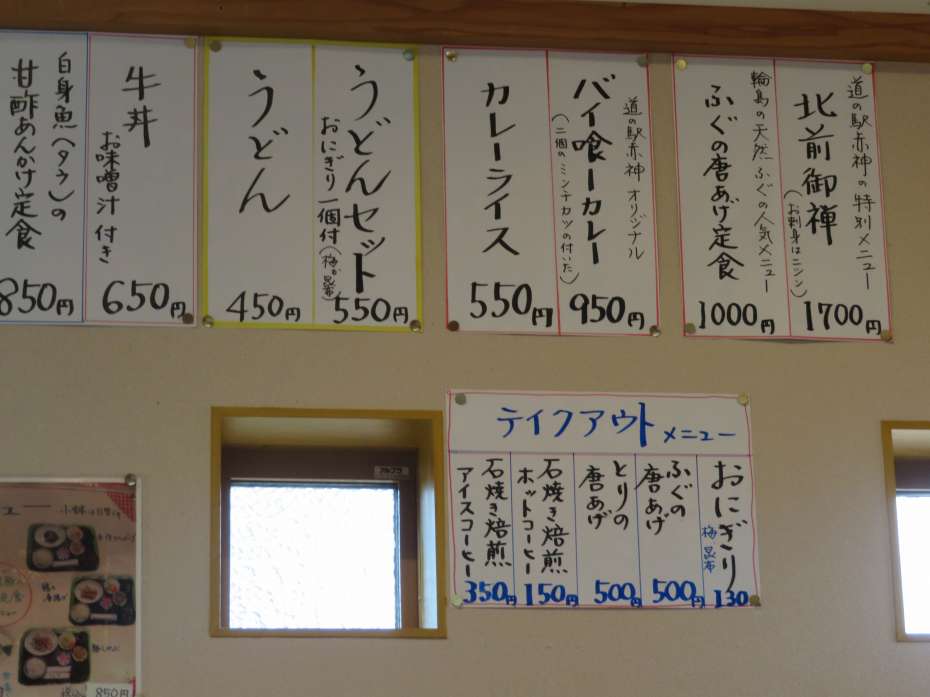 道の駅赤神の特別メニュー
北前御禅
(お刺身はニンン)
1700円
輪島の天然ふぐの人気メニュー
ふぐの唐あげ定食
1000円
道の駅赤神 オリジナル
バイ喰ーカレー
(二個のミンチカツの付いた)
950円
カレーライス
550円
うどんセット
おにぎり一個付(梅か昆布)
550円
うどん
450円
牛丼
お味噌汁付き
650円
白身魚(タラ)の
甘酢あんかけ定食
850円
テイクアウトメニュー
おにぎり
梅 昆布
130
ふぐの
唐あげ
500円
とりの
唐あげ
500円
石焼き焙煎
ホットコーヒー
150円
石焼き焙煎
アイスコーヒー
350円
850円